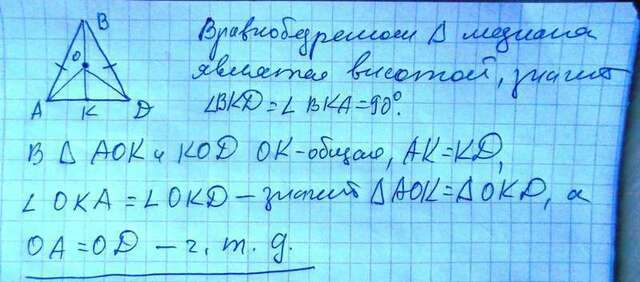 B
O
A K D
В равнобедренном Δ медиана
является высотой, значит
∠BKD = ∠ BKA = 90°.
В Δ AOK и KOD OK - общая, AK = KD,
∠ OKA = ∠ OKD – значит Δ AOK = Δ OKD, а
OA = OD – ч. т. д.